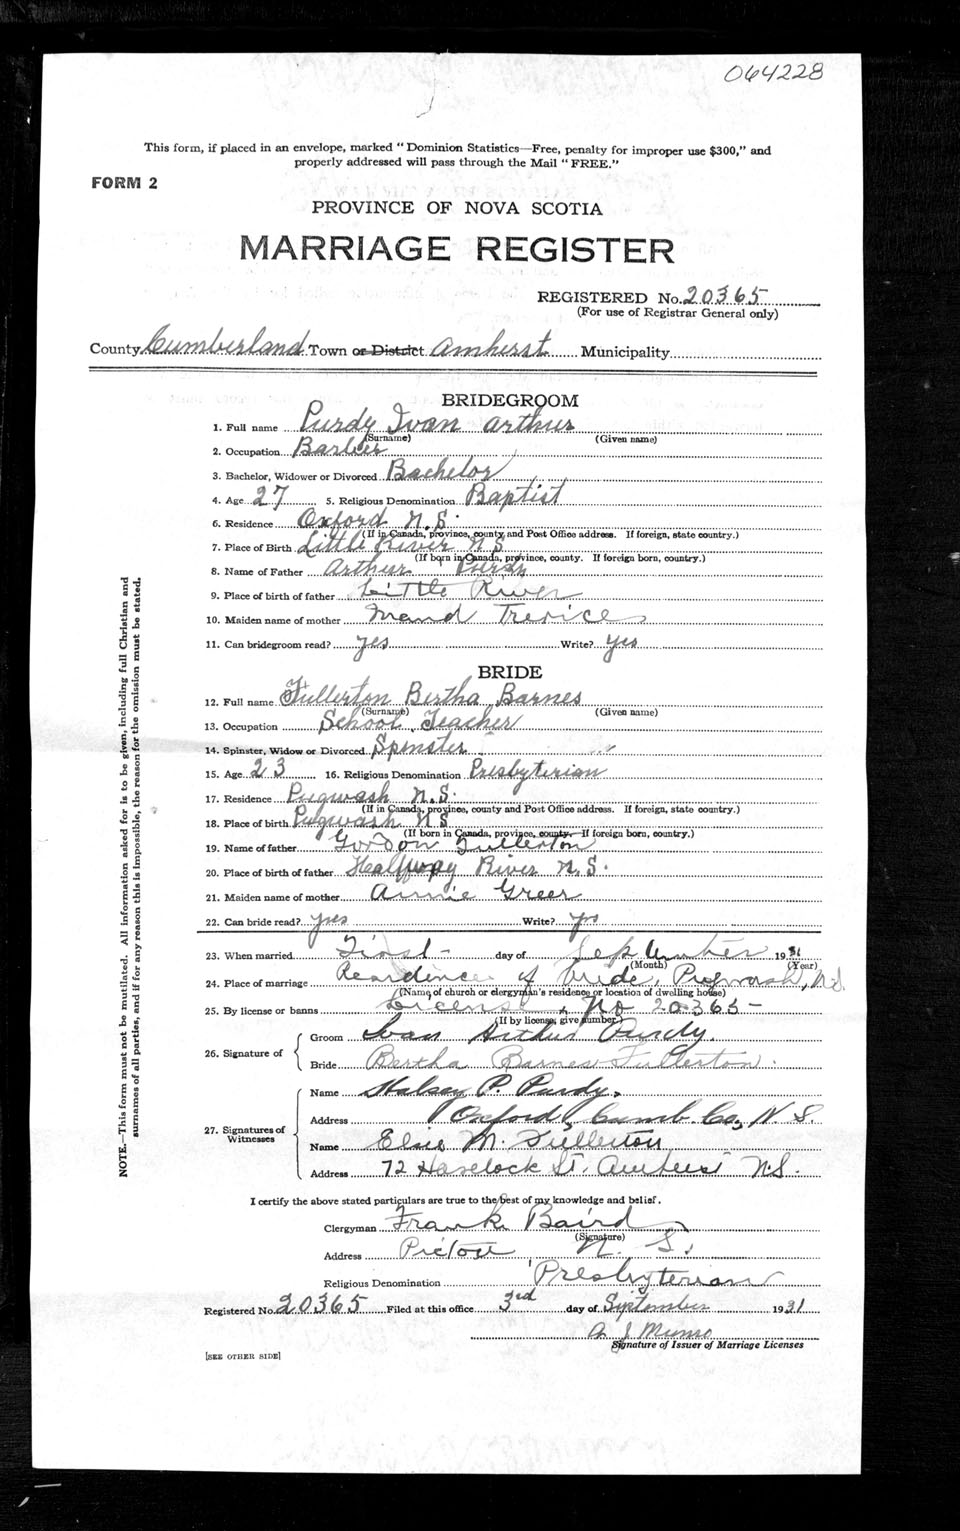 064228
This form, if placed in an envelope, marked "Dominion Statistics—Free, penalty for improper use $300," and
properly addressed will pass through the Mail "FREE."
FORM 2
PROVINCE OF NOVA SCOTIA
MARRIAGE REGISTER
REGISTERED No. 20365
(For use of Registrar General only)
County Cumberland Town or District Amherst Municipality
BRIDEGROOM
1. Full name Purdy Ivan Arthur
(Surname) (Given name)
2. Occupation Barber
3. Bachelor, Widower or Divorced Bachelor
4. Age 27 5. Religious Denomination Baptist
6. Residence Oxford N.S.
(If in Canada, province, county and Post Office address. If foreign, state country.)
7. Place of Birth Little River N S
(If born in Canada, province, county. If foreign born, country.)
8. Name of Father Arthur Purdy
9. Place of birth of father Little River
10. Maiden name of mother Maud
11. Can bridegroom read? yes Write? yes
BRIDE
12. Full name Fullerton Bertha Barnes
(Surname) (Given name)
13. Occupation School Teacher
14. Spinster, Widow or Divorced Spinster
15. Age 23 16. Religious Denomination Presbyterian
17. Residence Pugwash N.S.
(If in Canada, province, county and Post Office address. If foreign, state country.)
18. Place of birth Pugwash N S
(If born in Canada, province, county.—If foreign born, country.)
19. Name of father Gordon Fullerton
20. Place of birth of father Halfway River N.S.
21. Maiden name of mother Annie Greer
22. Can bride read? yes Write? yes
23. When married First day of September 1931
(Month) (Year)
24. Place of marriage Residence of Bride, Pugwash, N.S.
(Name of church or clergyman's residence or location of dwelling house)
25. By license or banns License, No 20365
(If by license, give number.)
26. Signature of Groom Ivan Arthur Purdy.
Bride Bertha Barnes Fullerton.
27. Signatures of Witnesses
Name Halsey P. Purdy,
Address Oxford, Cumb. Co., N.S.
Name Elsie M. Fullerton
Address 72 Havelock St. Amherst N.S.
I certify the above stated particulars are true to the best of my knowledge and belief.
Clergyman Frank Baird
(Signature)
Address Pictou N. S.
Religious Denomination Presbyterian
Registered No. 20365 Filed at this office 3rd day of September 1931
A J Munro
Signature of Issuer of Marriage Licenses
[SEE OTHER SIDE]
NOTE.—This form must not be mutilated. All information asked for is to be given, including full Christian and
surnames of all parties, and if for any reason this is impossible, the reason for the omission must be stated.